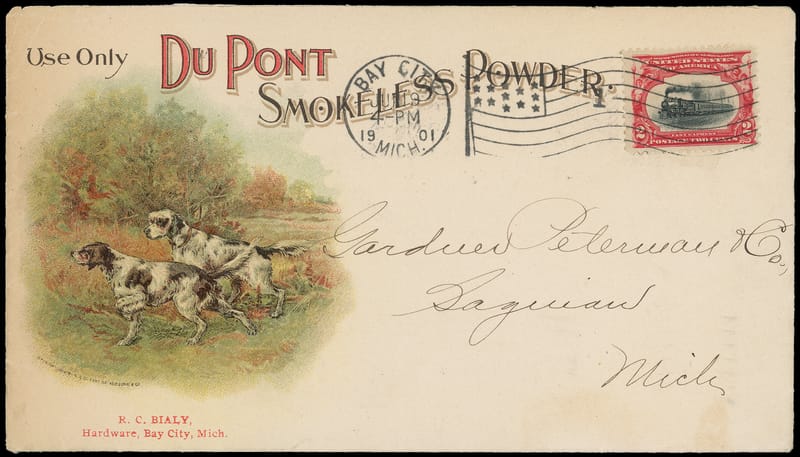 Use Only
DU PONT
SMOKELESS POWDER.
BAY CITY
4-PM
1901
MICH.
1
UNITED STATES
OF AMERICA
2 2
FAST EXPRESS
POSTAGE TWO CENTS
Gardner Peterman & Co,
Saginaw
Mich
R. C. BIALY,
Hardware, Bay City, Mich.